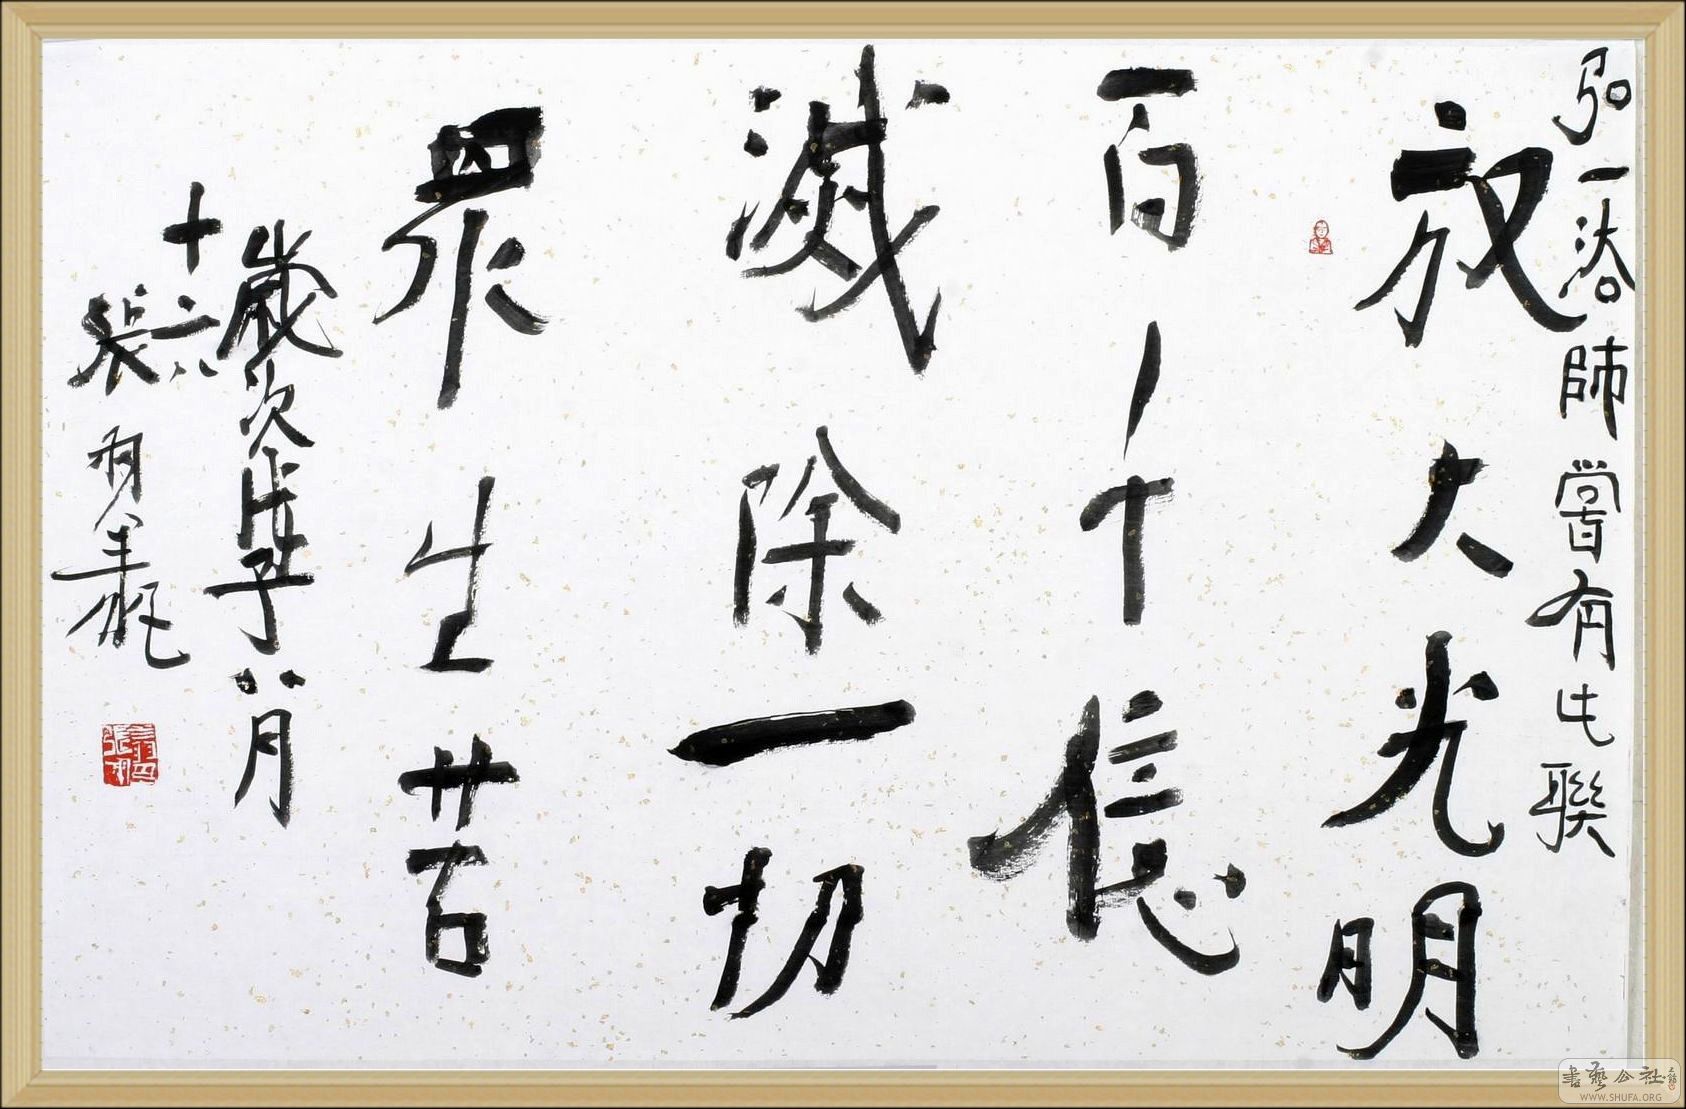 弘一法師嘗有此聯
放大光明
百千億
滅除一切
眾生苦
歲次戊子八月
十六
張羽
書藝公社
WWW.SHUFA.ORG